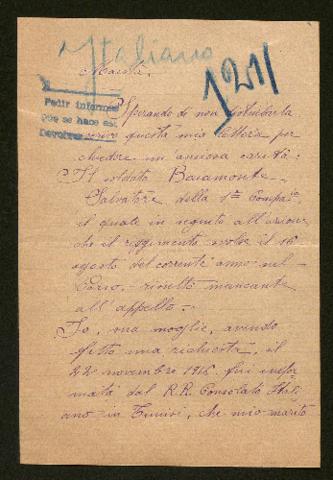 Italiano
Maestà.
121
Pedir informes
que se hace est
Devolver
Sperando de non disturbarla
scrivo questa mia lettera per
chiedere un ancora carità:
Il soldato Baiamonte
Salvatore della 1ª Compª
il quale in seguito all'azione
che il reggimento svolse il 16
agosto del corrente anno nel
Carso, risultò mancante
all'appello.
Io, sua moglie, avendo
fatto una richiesta, il
22 novembre 1916 fui infor
mata dal R.R. Consolato Itali
ano in Tunisi, che mio marito